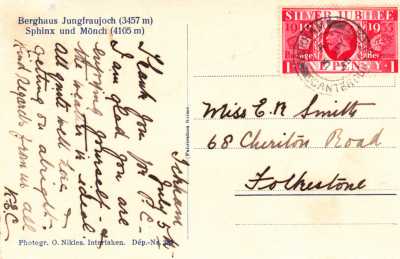 Berghaus Jungfraujoch (3457 m)
Sphinx und Mönch (4105 m)
July 5th
Thank you for P.C.
I am glad you are
enjoying yourself. &
the weather is ideal.
All quite well here &
getting on alright.
Kind Regards from us all
SILVER JUBILEE
1910 1935
ONE PENNY
1 1
CANTERBURY
Miss E. R. Smith
68 Cheriton Road
Folkestone
Photogr. O. Nikles. Interlaken. Dép.-No.